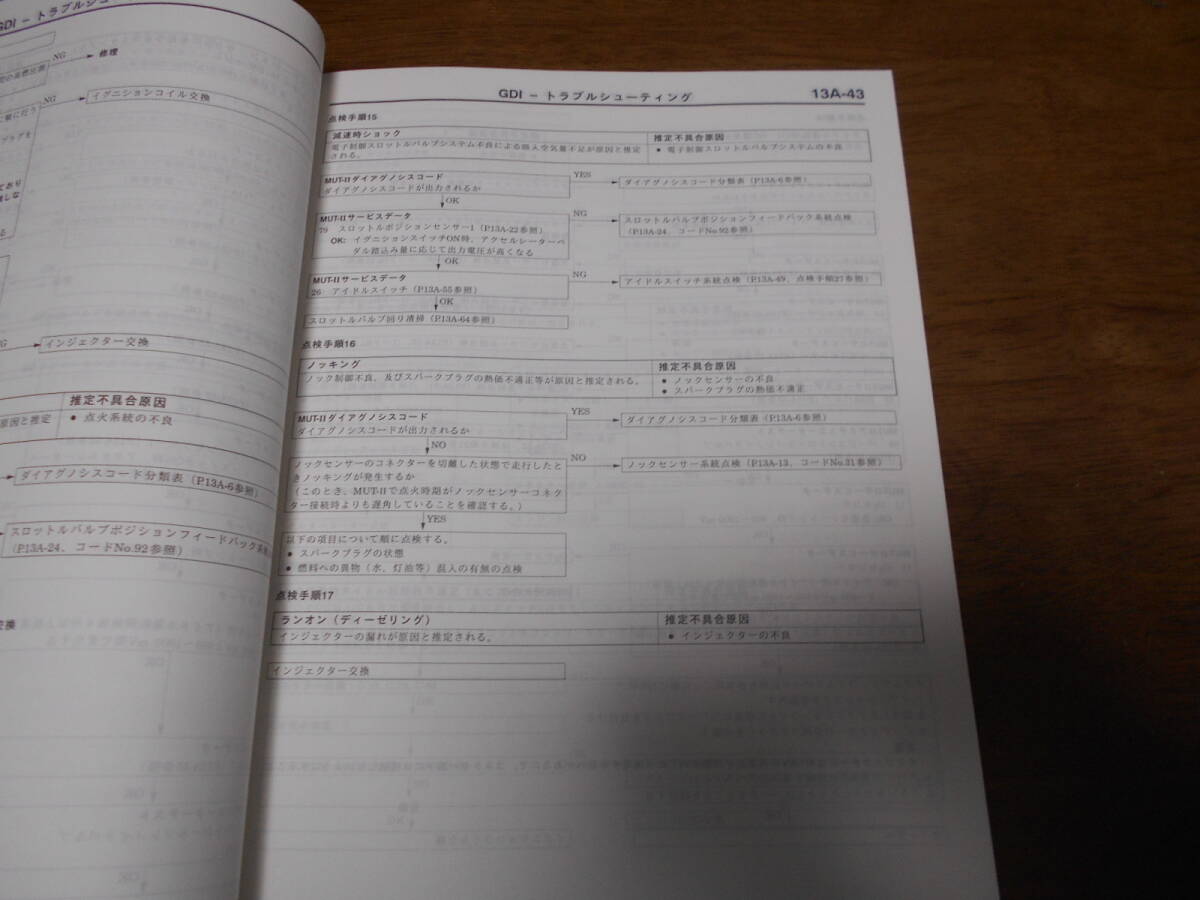 GDI － トラブルシュー
NG
修理
NG
イグニションコイル交換
に順に行う
プラグを
であり
インジェクター交換
推定不具合原因
原因と推定
● 点火系統の不良
ダイアグノシスコード分類表（P.13A-6参照）
スロットルバルブポジションフィードバック系統
（P.13A-24、コードNo.92参照）
交換
GDI － トラブルシューティング
13A-43
点検手順15
減速時ショック
推定不具合原因
電子制御スロットルバルブシステム不良による吸入空気量不足が原因と推定
される。
● 電子制御スロットルバルブシステムの不良
MUT-IIダイアグノシスコード
ダイアグノシスコードが出力されるか
YES
ダイアグノシスコード分類表（P.13A-6参照）
OK
MUT-IIサービスデータ
79 スロットルポジションセンサー1（P.13A-22参照）
OK: イグニションスイッチON時、アクセルレーターペ
ダル踏込み量に応じて出力電圧が高くなる
NG
スロットルバルブポジションフィードバック系統点検
（P.13A-24、コードNo.92参照）
OK
MUT-IIサービスデータ
26 アイドルスイッチ（P.13A-55参照）
NG
アイドルスイッチ系統点検（P.13A-49、点検手順27参照）
OK
スロットルバルブ回り清掃（P.13A-64参照）
点検手順16
ノッキング
推定不具合原因
ノック制御不良、及びスパークプラグの熱価不適正等が原因と推定される。
● ノックセンサーの不良
● スパークプラグの熱価不適正
MUT-IIダイアグノシスコード
ダイアグノシスコードが出力されるか
YES
ダイアグノシスコード分類表（P.13A-6参照）
NO
ノックセンサーのコネクターを切離した状態で走行したと
きノッキングが発生するか
（このとき、MUT-IIで点火時期がノックセンサーコネク
ター接続時よりも遅角していることを確認する。）
NO
ノックセンサー系統点検（P.13A-13、コードNo.31参照）
YES
以下の項目について順に点検する。
● スパークプラグの状態
● 燃料への異物（水、灯油等）混入の有無の点検
点検手順17
ランオン（ディーゼリング）
推定不具合原因
インジェクターの漏れが原因と推定される。
● インジェクターの不良
インジェクター交換